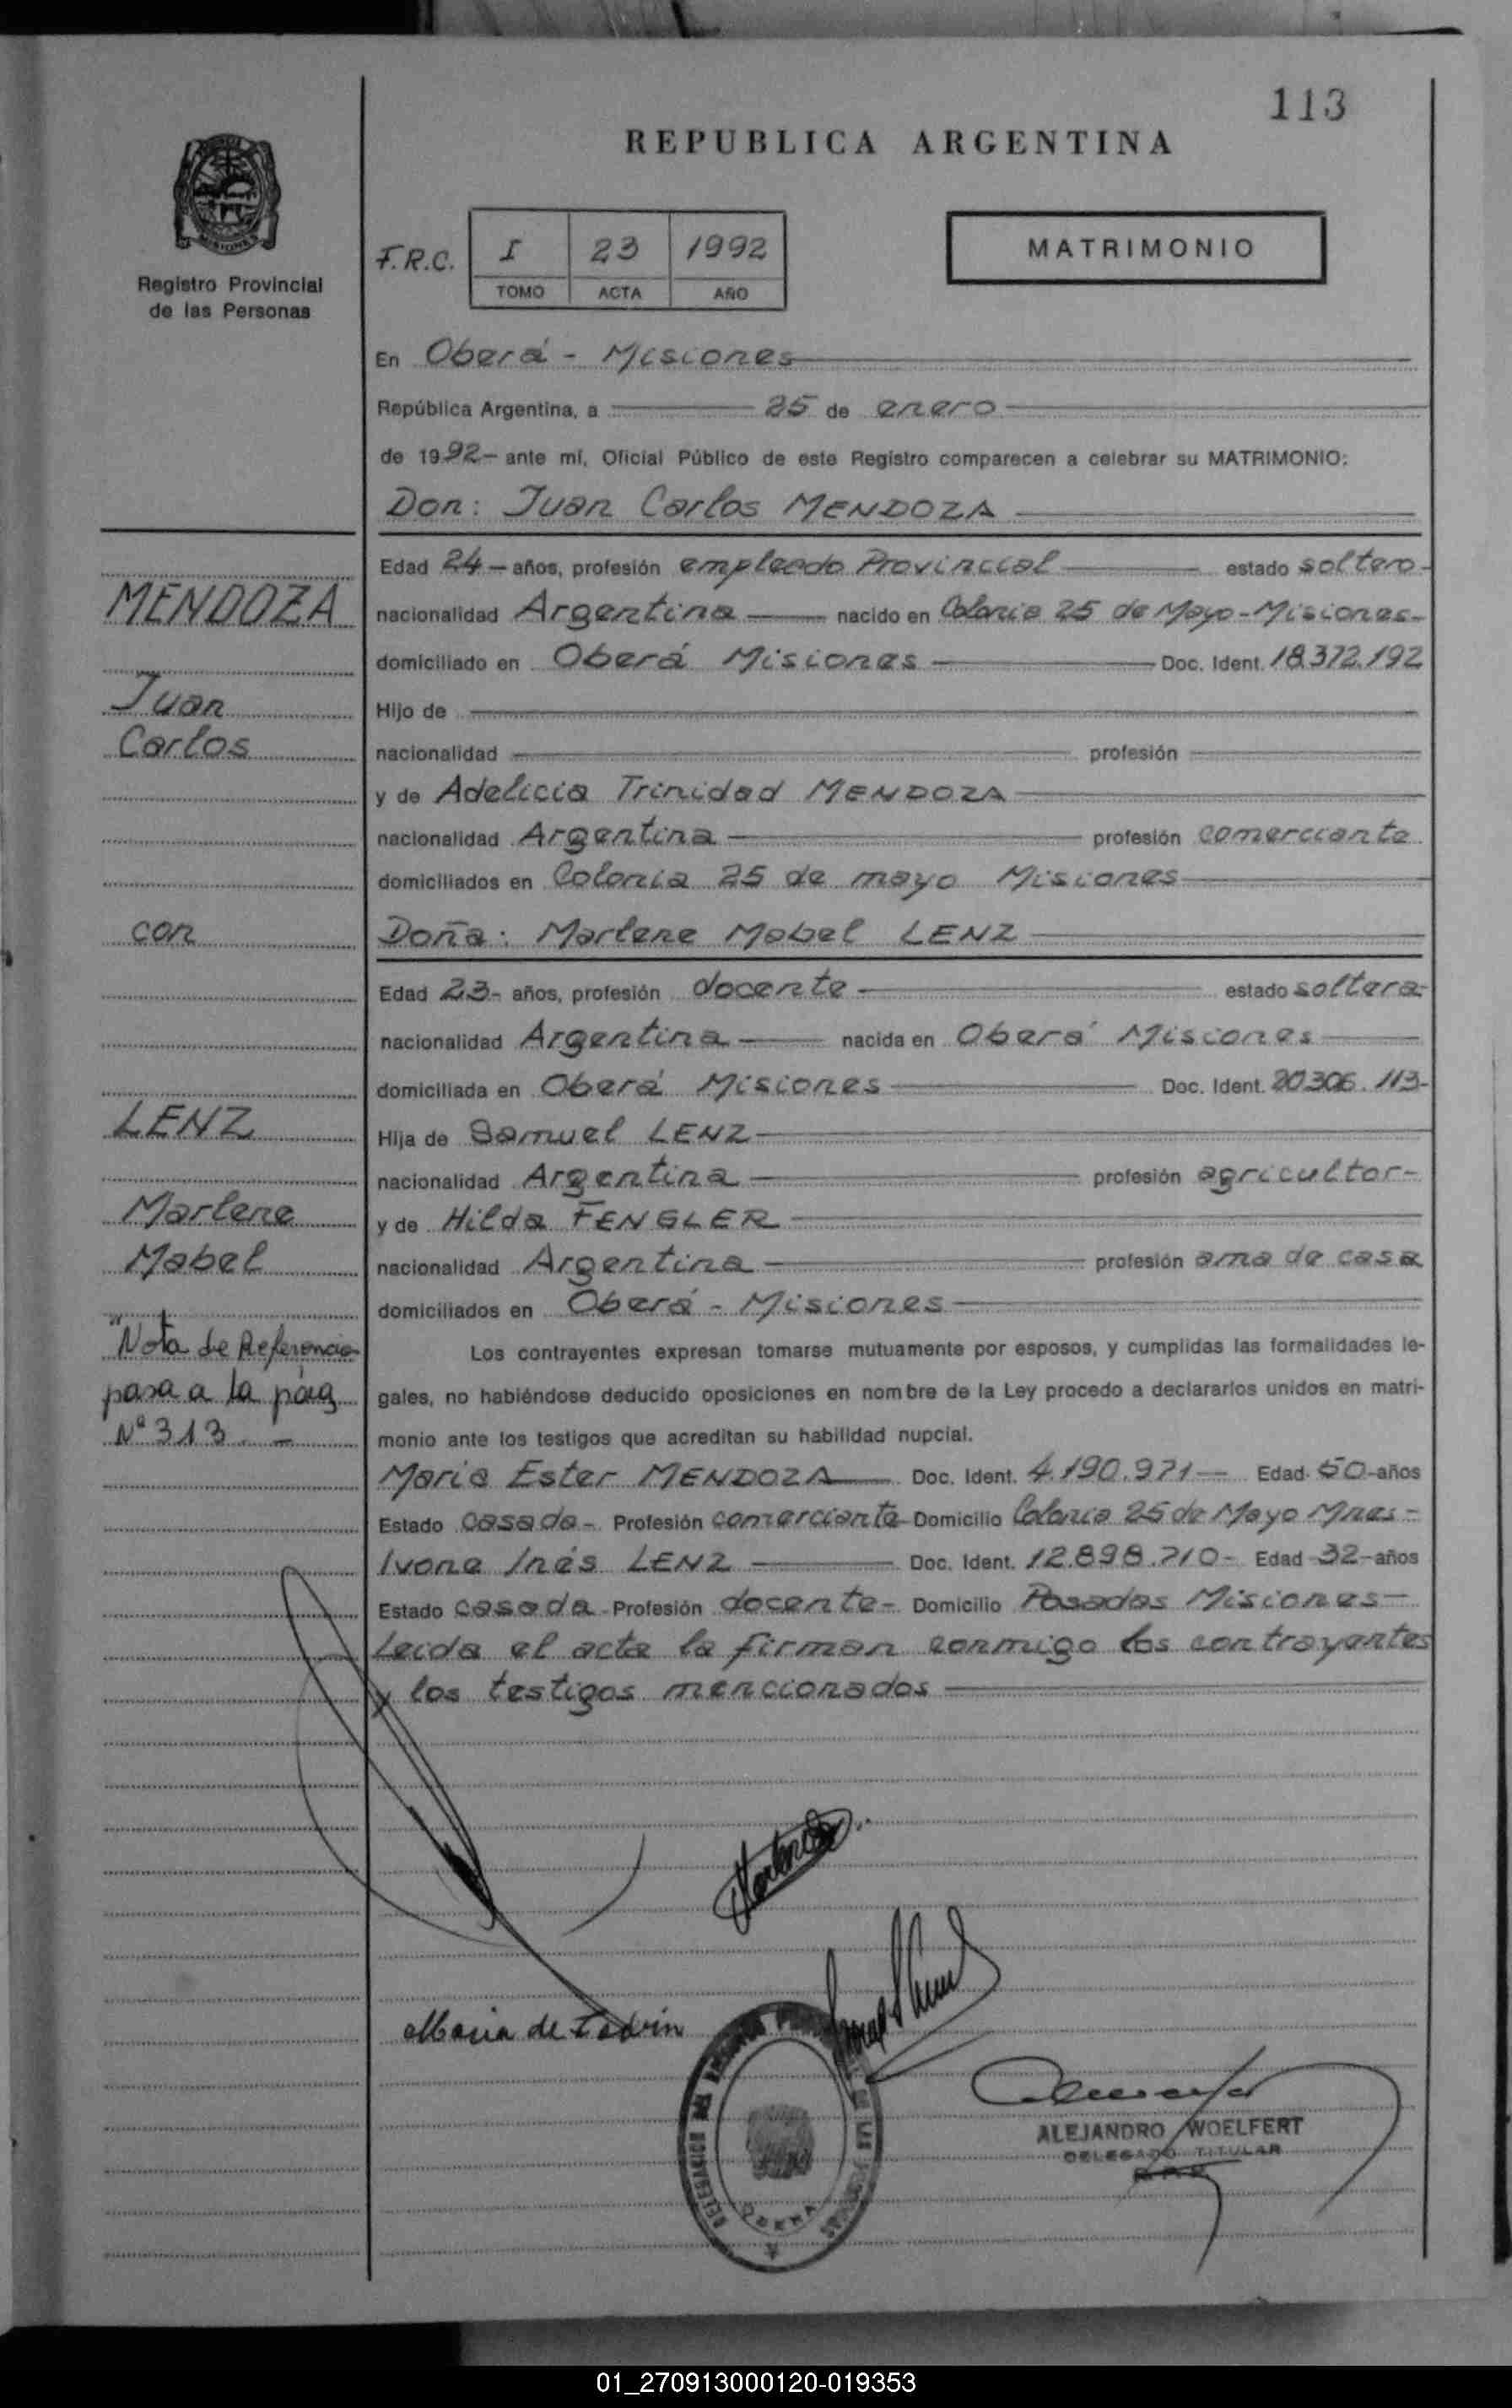 113
REPUBLICA ARGENTINA
MISIONES
Registro Provincial
de las Personas
F.R.C. I 23 1992
TOMO ACTA AÑO
MATRIMONIO
En Oberá - Misiones
República Argentina, a 25 de enero
de 1992- ante mí, Oficial Público de este Registro comparecen a celebrar su MATRIMONIO:
Don: Juan Carlos MENDOZA
Edad 24- años, profesión empleado Provincial estado soltero-
MENDOZA
nacionalidad Argentina nacido en Colonia 25 de Mayo-Misiones-
domiciliado en Oberá Misiones Doc. Ident. 18.372.192
Juan
Hijo de
Carlos
nacionalidad profesión
y de Adelicia Trinidad MENDOZA
nacionalidad Argentina profesión comerciante
domiciliados en Colonia 25 de mayo Misiones
con
Doña: Marlene Mabel LENZ
Edad 23- años, profesión docente estado soltera-
nacionalidad Argentina nacida en Oberá Misiones
domiciliada en Oberá Misiones Doc. Ident. 20.306.113-
LENZ
Hija de Samuel LENZ
nacionalidad Argentina profesión agricultor-
Marlene
y de Hilda FENGLER
Mabel
nacionalidad Argentina profesión ama de casa
domiciliados en Oberá - Misiones
"Nota de Referencia
pasa a la pág
Nº 313. -
Los contrayentes expresan tomarse mutuamente por esposos, y cumplidas las formalidades le-
gales, no habiéndose deducido oposiciones en nombre de la Ley procedo a declararlos unidos en matri-
monio ante los testigos que acreditan su habilidad nupcial.
Maria Ester MENDOZA Doc. Ident. 4.190.971- Edad 50-años
Estado casada- Profesión comerciante Domicilio Colonia 25 de Mayo Mnes-
Ivone Inés LENZ Doc. Ident. 12.898.710- Edad 32-años
Estado casada Profesión docente- Domicilio Posadas Misiones-
Leida el acta la firman conmigo los contrayentes
y los testigos mencionados
Maria de
ALEJANDRO WOELFERT
DELEGADO TITULAR
OBERA
01_270913000120-019353